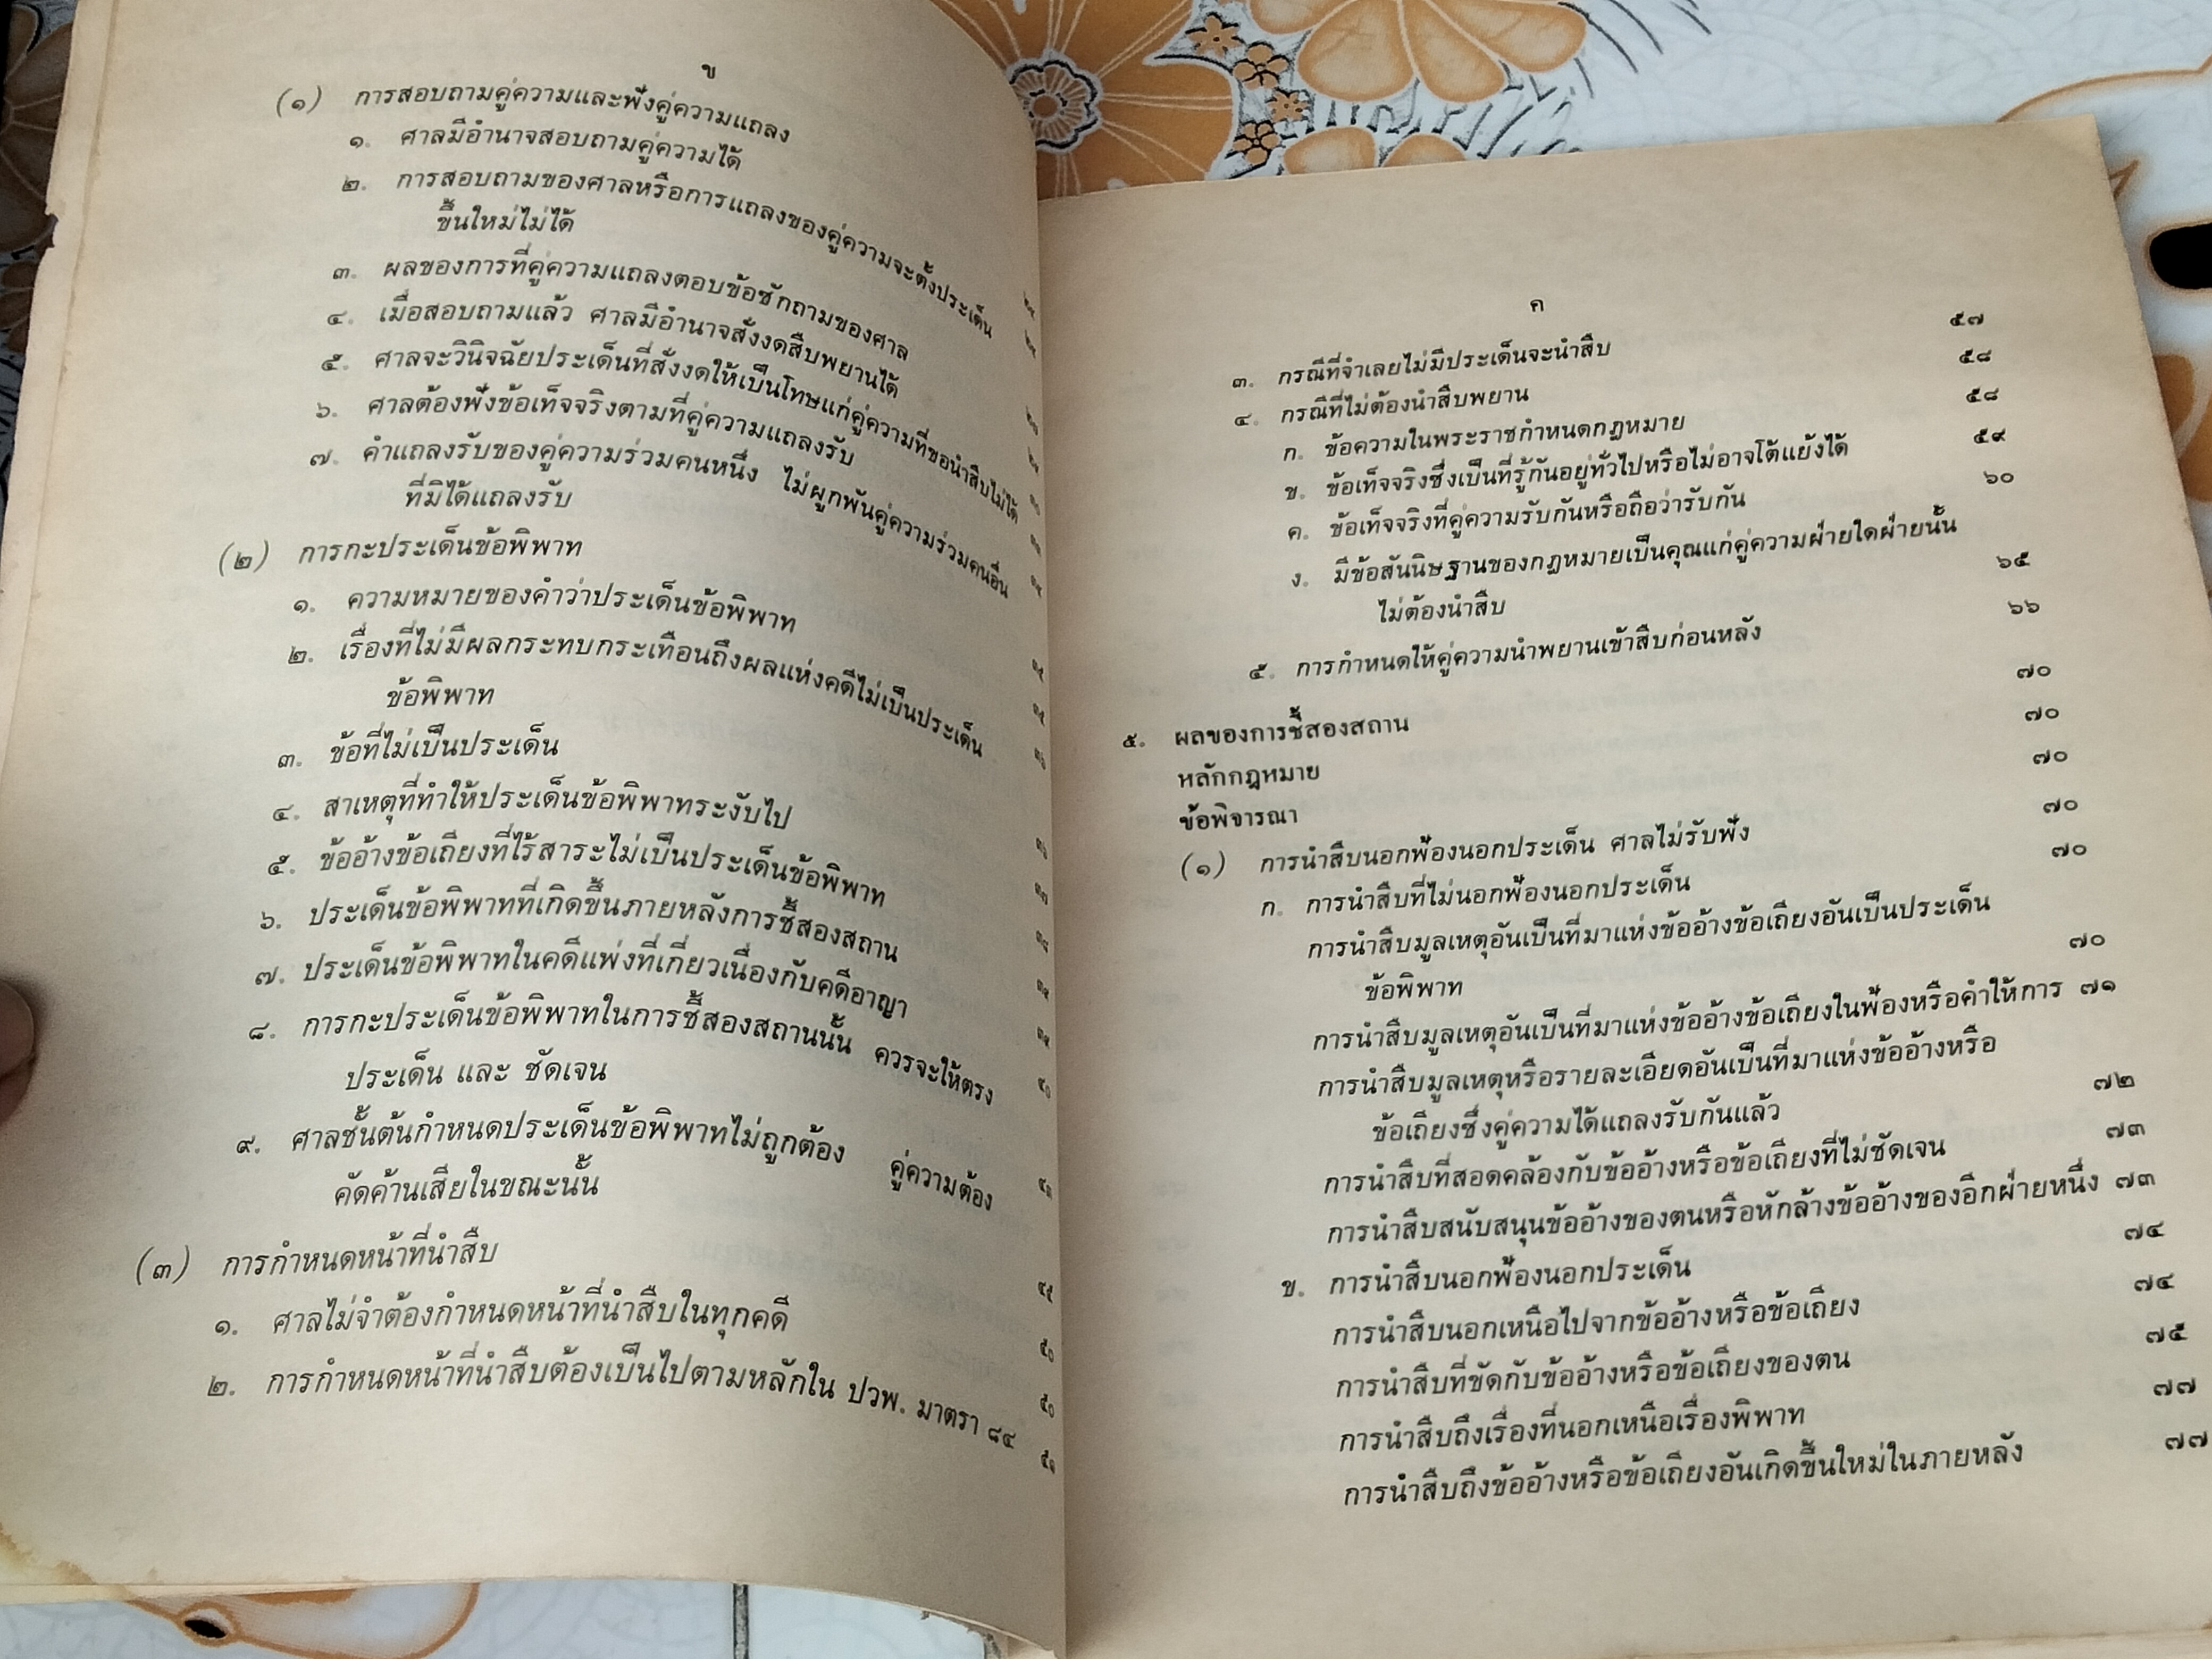 ข
(๑) การสอบถามคู่ความและฟังคู่ความแถลง
๑. ศาลมีอำนาจสอบถามคู่ความได้
๒. การสอบถามของศาลหรือการแถลงของคู่ความจะตั้งประเด็น
ขึ้นใหม่ไม่ได้
๓. ผลของการที่คู่ความแถลงตอบข้อซักถามของศาล
๔. เมื่อสอบถามแล้ว ศาลมีอำนาจสั่งงดสืบพยานได้
๕. ศาลจะวินิจฉัยประเด็นที่สั่งงดให้เป็นโทษแก่คู่ความที่ขอนำสืบไม่ได้
๖. ศาลต้องฟังข้อเท็จจริงตามที่คู่ความแถลงรับ
๗. คำแถลงรับของคู่ความร่วมคนหนึ่ง ไม่ผูกพันคู่ความร่วมคนอื่น
ที่มิได้แถลงรับ
(๒) การกะประเด็นข้อพิพาท
๑. ความหมายของคำว่าประเด็นข้อพิพาท
๒. เรื่องที่ไม่มีผลกระทบกระเทือนถึงผลแห่งคดีไม่เป็นประเด็น
ข้อพิพาท
๓. ข้อที่ไม่เป็นประเด็น
๔. สาเหตุที่ทำให้ประเด็นข้อพิพาทระงับไป
๕. ข้ออ้างข้อเถียงที่ไร้สาระไม่เป็นประเด็นข้อพิพาท
๖. ประเด็นข้อพิพาทที่เกิดขึ้นภายหลังการชี้สองสถาน
๗. ประเด็นข้อพิพาทในคดีแพ่งที่เกี่ยวเนื่องกับคดีอาญา
๘. การกะประเด็นข้อพิพาทในการชี้สองสถานนั้น ควรจะให้ตรง
ประเด็น และ ชัดเจน
๙. ศาลชั้นต้นกำหนดประเด็นข้อพิพาทไม่ถูกต้อง คู่ความต้อง
คัดค้านเสียในขณะนั้น
(๓) การกำหนดหน้าที่นำสืบ
๑. ศาลไม่จำต้องกำหนดหน้าที่นำสืบในทุกคดี ๕๐
๒. การกำหนดหน้าที่นำสืบต้องเป็นไปตามหลักใน ปวพ. มาตรา ๘๔ ๕๑
ค
๓. กรณีที่จำเลยไม่มีประเด็นจะนำสืบ ๕๗
๔. กรณีที่ไม่ต้องนำสืบพยาน ๕๘
ก. ข้อความในพระราชกำหนดกฎหมาย ๕๘
ข. ข้อเท็จจริงซึ่งเป็นที่รู้กันอยู่ทั่วไปหรือไม่อาจโต้แย้งได้ ๕๙
ค. ข้อเท็จจริงที่คู่ความรับกันหรือถือว่ารับกัน ๖๐
ง. มีข้อสันนิษฐานของกฎหมายเป็นคุณแก่คู่ความฝ่ายใดฝ่ายนั้น
ไม่ต้องนำสืบ ๖๕
๕. การกำหนดให้คู่ความนำพยานเข้าสืบก่อนหลัง ๖๖
๕. ผลของการชี้สองสถาน ๗๐
หลักกฎหมาย ๗๐
ข้อพิจารณา ๗๐
(๑) การนำสืบนอกฟ้องนอกประเด็น ศาลไม่รับฟัง ๗๐
ก. การนำสืบที่ไม่นอกฟ้องนอกประเด็น ๗๐
การนำสืบมูลเหตุอันเป็นที่มาแห่งข้ออ้างข้อเถียงอันเป็นประเด็น
ข้อพิพาท ๗๐
การนำสืบมูลเหตุอันเป็นที่มาแห่งข้ออ้างข้อเถียงในฟ้องหรือคำให้การ ๗๑
การนำสืบมูลเหตุหรือรายละเอียดอันเป็นที่มาแห่งข้ออ้างหรือ
ข้อเถียงซึ่งคู่ความได้แถลงรับกันแล้ว ๗๒
การนำสืบที่สอดคล้องกับข้ออ้างหรือข้อเถียงที่ไม่ชัดเจน ๗๓
การนำสืบสนับสนุนข้ออ้างของตนหรือหักล้างข้ออ้างของอีกฝ่ายหนึ่ง ๗๓
ข. การนำสืบนอกฟ้องนอกประเด็น ๗๔
การนำสืบนอกเหนือไปจากข้ออ้างหรือข้อเถียง ๗๔
การนำสืบที่ขัดกับข้ออ้างหรือข้อเถียงของตน ๗๕
การนำสืบถึงเรื่องที่นอกเหนือเรื่องพิพาท ๗๗
การนำสืบถึงข้ออ้างหรือข้อเถียงอันเกิดขึ้นใหม่ในภายหลัง ๗๗